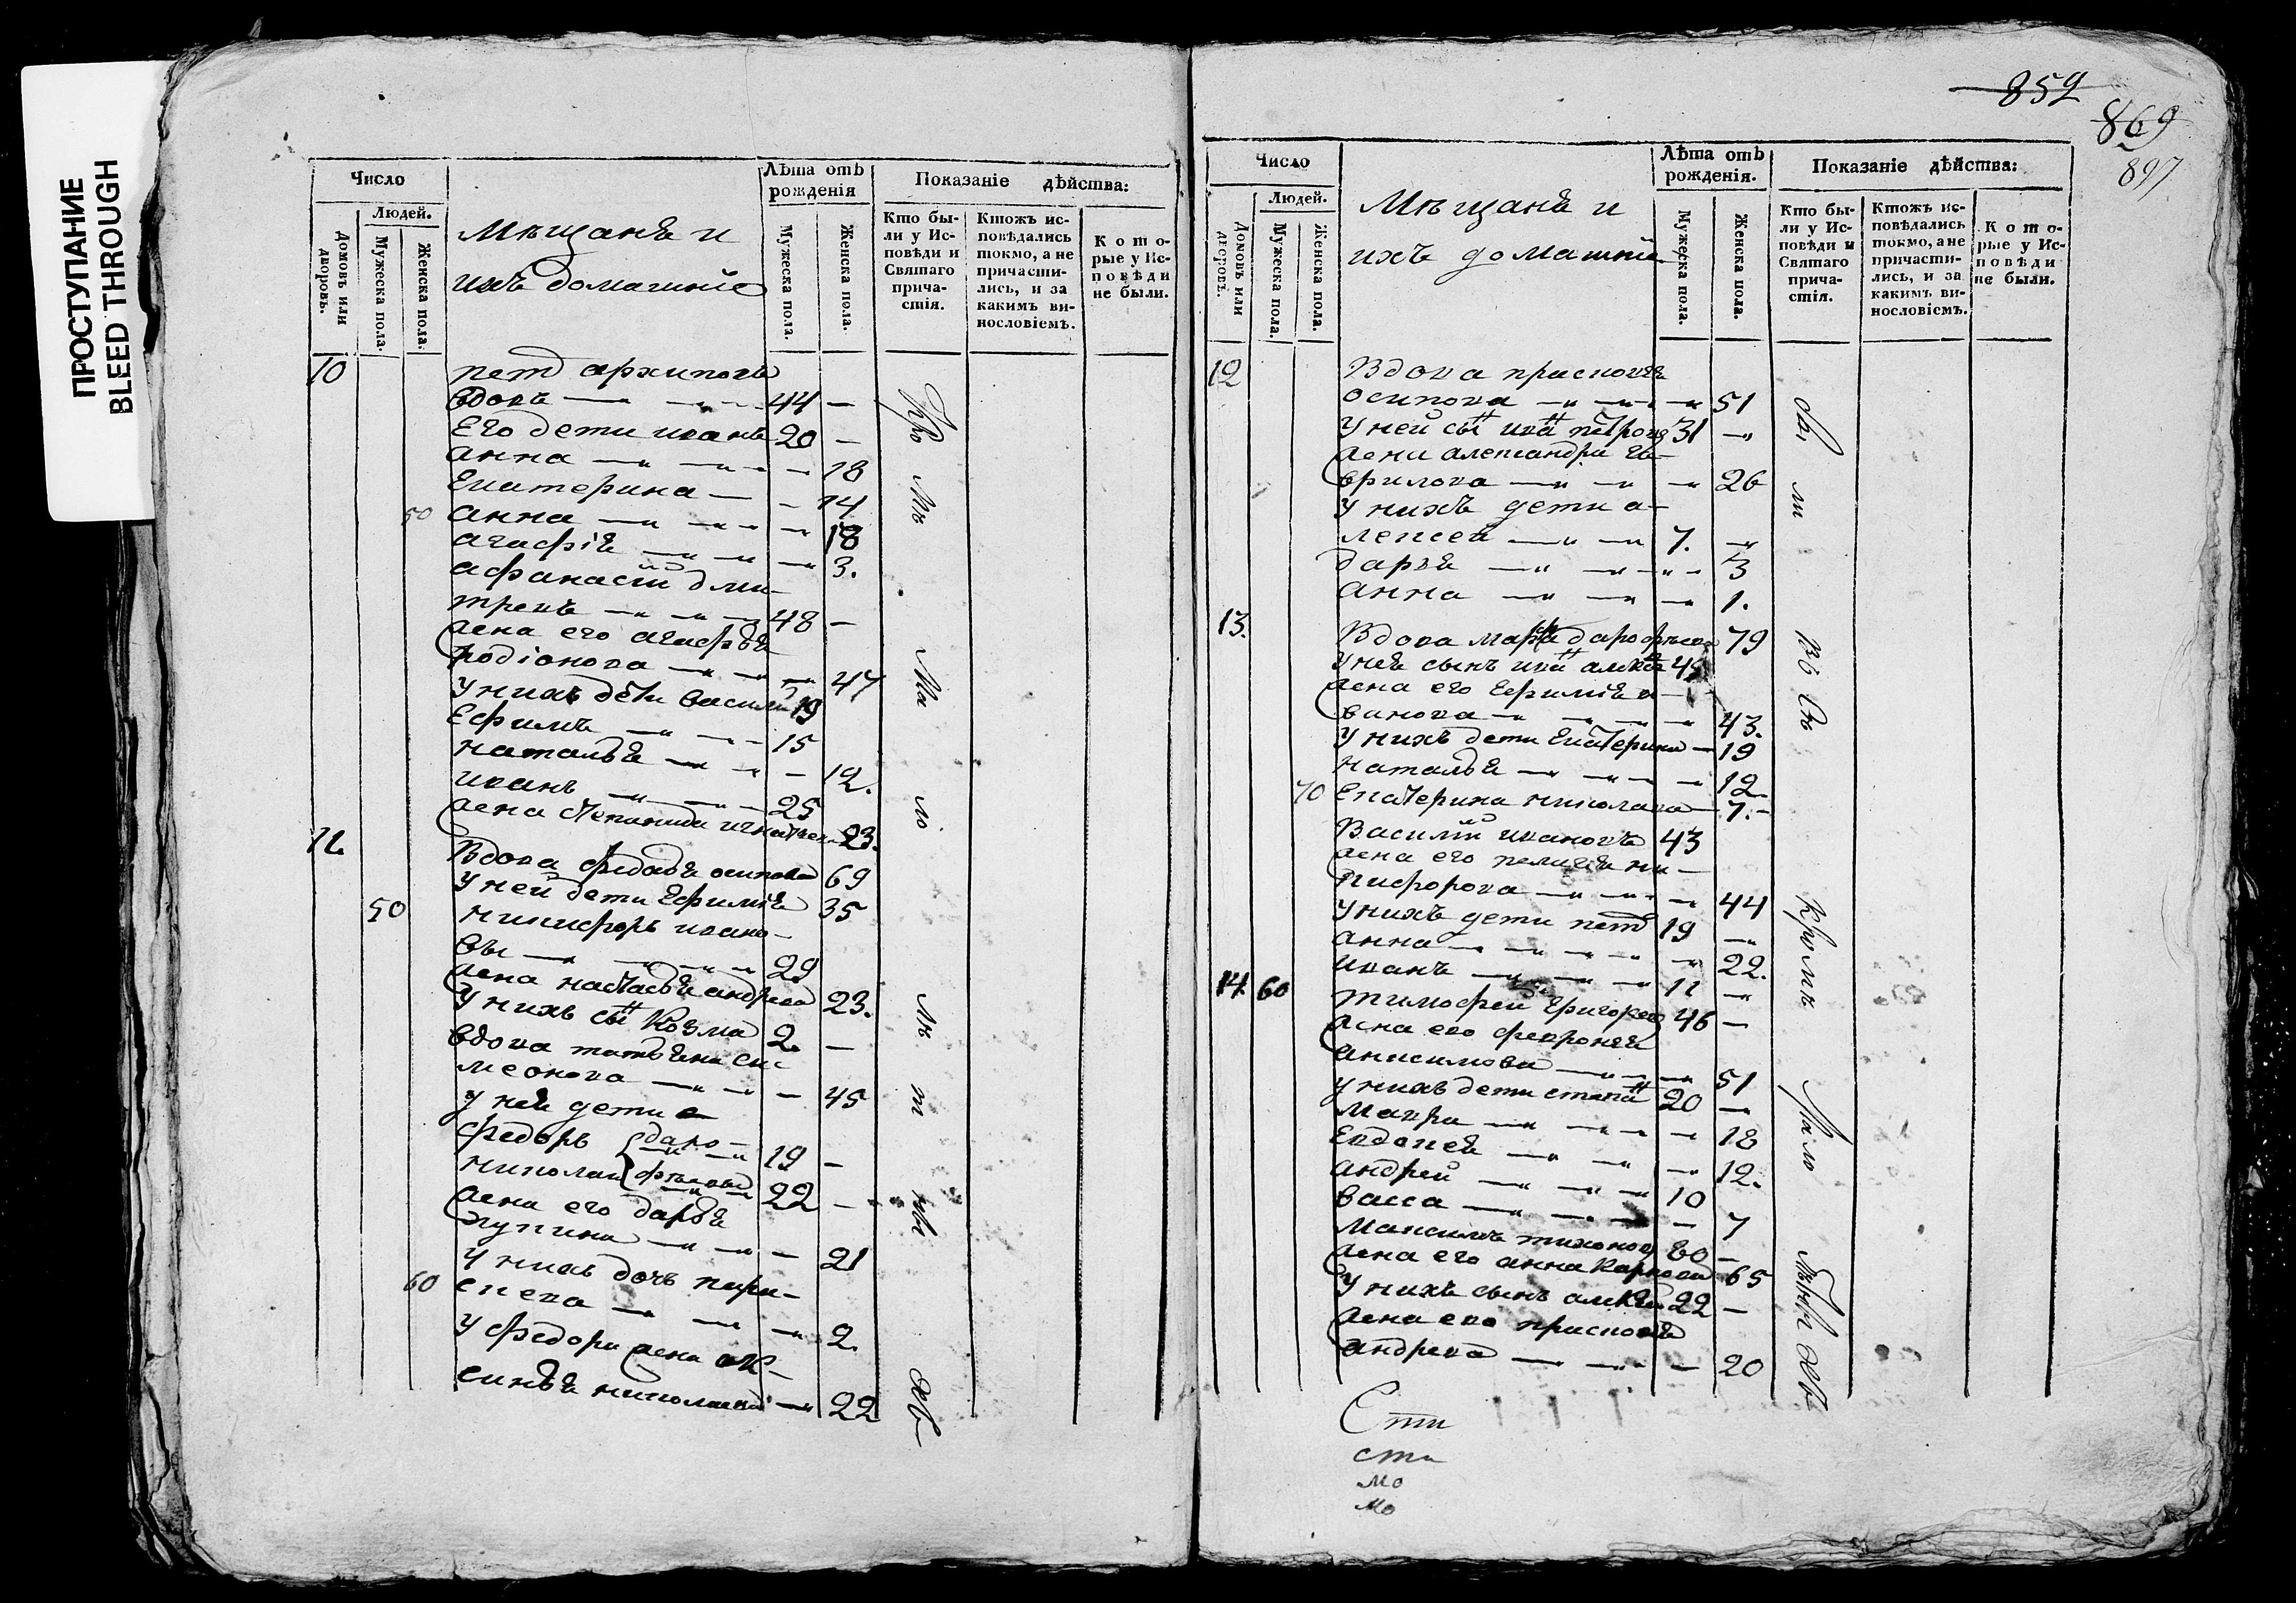 ПРОСТУПАНИЕ
BLEED THROUGH
Число
Людей.
Домовъ или дворовъ.
Мужеска пола.
Женска пола.
Мѣщанѣ и
ихъ домашніе
Лѣта отъ рожденія
Мужеска пола.
Женска пола.
Показаніе дѣйства:
Кто бы-
ли у Ис-
повѣди и
Святаго
прича-
стія.
Ктожъ ис-
повѣдались
токмо, а не
причасти-
лись, и за
какимъ ви-
нословіемъ.
Кото-
рые у Ис-
повѣди
не были.
10 петр архиповъ
вдовъ 44 —
Его дети иванъ 20 —
анна — 18
Екатерина — 14
50 анна — 18
агафія — 3.
афанасій дми-
треевъ 48 —
жена его агафья
родіонова — 47
у нихъ дети василій 19
Ефимъ — 15
наталья — 12.
иванъ — 25
жена степанида игнатьева 23.
11. Вдова федосья осипова 69
у ней дети Ефимія 35
50 никифоръ ивано-
въ — 29
жена настасья андреева 23.
у нихъ сынъ Козма 2. —
вдова татьяна си-
меонова — 45
у ней дети
федоръ даро- 19 —
николай фѣевы 22 —
жена его дарья
лукина — 21
у нихъ дочь пара-
60 скева — 2.
у федора жена ак-
синья николаева — 22
852
869
897
Число
Людей.
Домовъ или дворовъ.
Мужеска пола.
Женска пола.
Мѣщанѣ и
ихъ домашніе
Лѣта отъ рожденія.
Мужеска пола.
Женска пола.
Показаніе дѣйства:
Кто бы-
ли у Ис-
повѣди и
Святаго
прича-
стія.
Ктожъ ис-
повѣдались
токмо, а не
причасти-
лись, и за
какимъ ви-
нословіемъ.
Кото-
рые у Ис-
повѣди
не были.
12 Вдова прасковья
осипова — 51
у ней сынъ иванъ петровъ 31 —
жена александра га-
врилова — 26
у нихъ дети а-
лексей — 7. —
дарья — 3
анна — 1.
13. Вдова марфа дарофѣева 79
у ней сынъ иванъ 45
жена его Ефимія и-
ванова — 43.
у нихъ дети Екатерина — 19
наталья — 12.
70 Екатерина николаева — 7. —
Василій ивановъ 43
жена его пелагея ни-
кифорова — 44
у нихъ дети петр 19 —
анна — 22.
иванъ — 11 —
14. 60 тимофей григорьевъ 46 —
жена его февронья
анисимова — 51
у нихъ дети степанъ 20 —
мавра — 18
Евдокея — 12.
андрей — 10
васса — 7
Максимъ тихоновъ 60 —
жена его анна карпова 65
у нихъ сынъ алексей 22 —
жена его прасковья
андреева — 20
Сти
сти
мо
мо